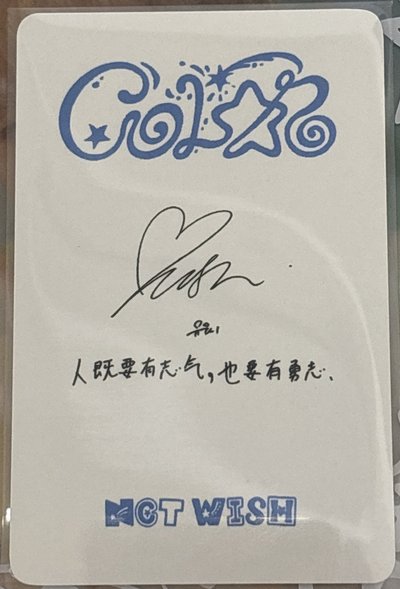 COLOR
유우시
人既要有志气,也要有勇志.
NCT WISH